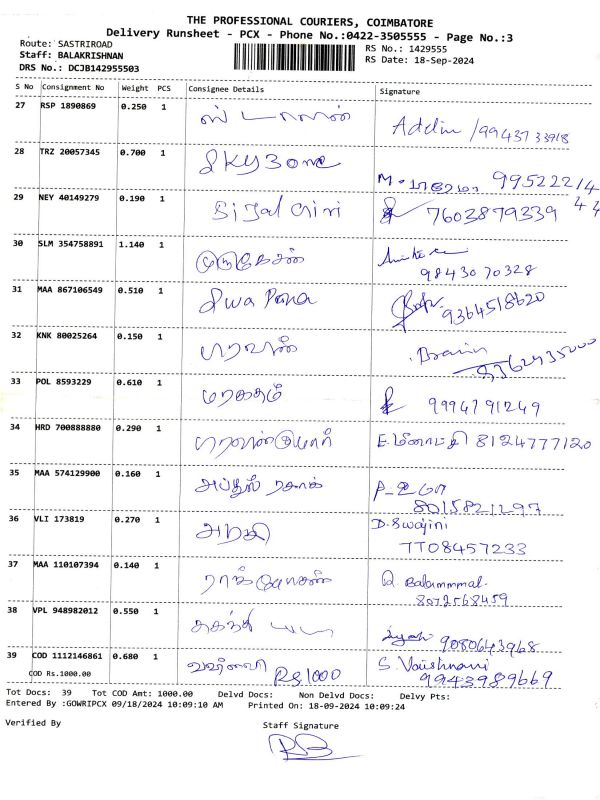 THE PROFESSIONAL COURIERS, COIMBATORE
Delivery Runsheet - PCX - Phone No.:0422-3505555 - Page No.:3
Route: SASTRIROAD
RS No.: 1429555
Staff: BALAKRISHNAN
RS Date: 18-Sep-2024
DRS No.: DCJB142955503
S No Consignment No Weight PCS Consignee Details Signature
27 RSP 1890869 0.250 1 ஸ்டாலான் /9943733918
28 TRZ 20057345 0.700 1 Skyzone 99522214
44
29 NEY 40149279 0.190 1 7603879339
30 SLM 354758891 1.140 1 முருகேசன்
9843070328
31 MAA 867106549 0.510 1 9364518620
32 KNK 80025264 0.150 1 சரவான்
9362435000
33 POL 8593229 0.610 1 மரகதம் 9994791249
34 HRD 700888880 0.290 1 E.மீனாட்சி 8124777120
35 MAA 574129900 0.160 1 அப்துல் ரசாக் P-உமா
8015821297
36 VLI 173819 0.270 1 D.Swajini
7708457233
37 MAA 110107394 0.140 1 Balammmal
8072568459
38 VPL 948982012 0.550 1 9080643968
39 COD 1112146861 0.680 1 Rs1000 S Vaishnavi
COD Rs.1000.00 9943989669
Tot Docs: 39 Tot COD Amt: 1000.00 Delvd Docs: Non Delvd Docs: Delvy Pts:
Entered By :GOWRIPCX 09/18/2024 10:09:10 AM Printed On: 18-09-2024 10:09:24
Verified By Staff Signature